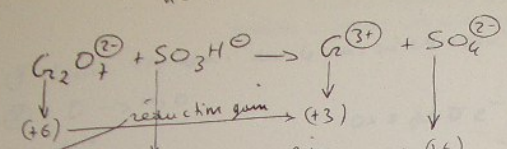 Cr₂O₇²⁻ + SO₃H⁻ → Cr³⁺ + SO₄²⁻
réduction gain
(+6) → (+3)